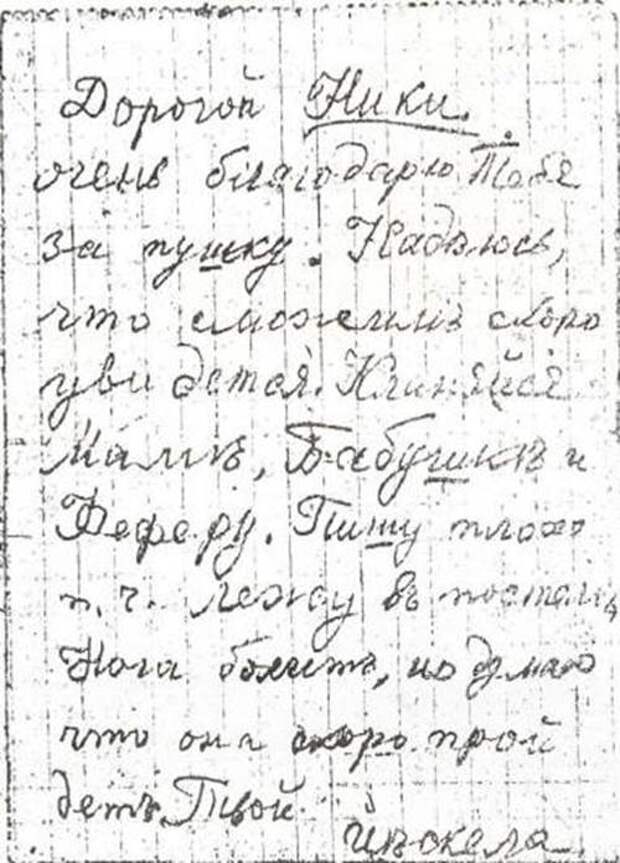 Дорогой Ники.
очень благодарю Тебя
за пушку. Надѣюсь,
что сможемъ скоро
увидется. Кланяйся
Мамѣ, Бабушкѣ и
Феферу. Пишу плохо
п. ч. лежу въ постели,
Нога болитъ, но думаю
что она скоро прой
детъ. Твой